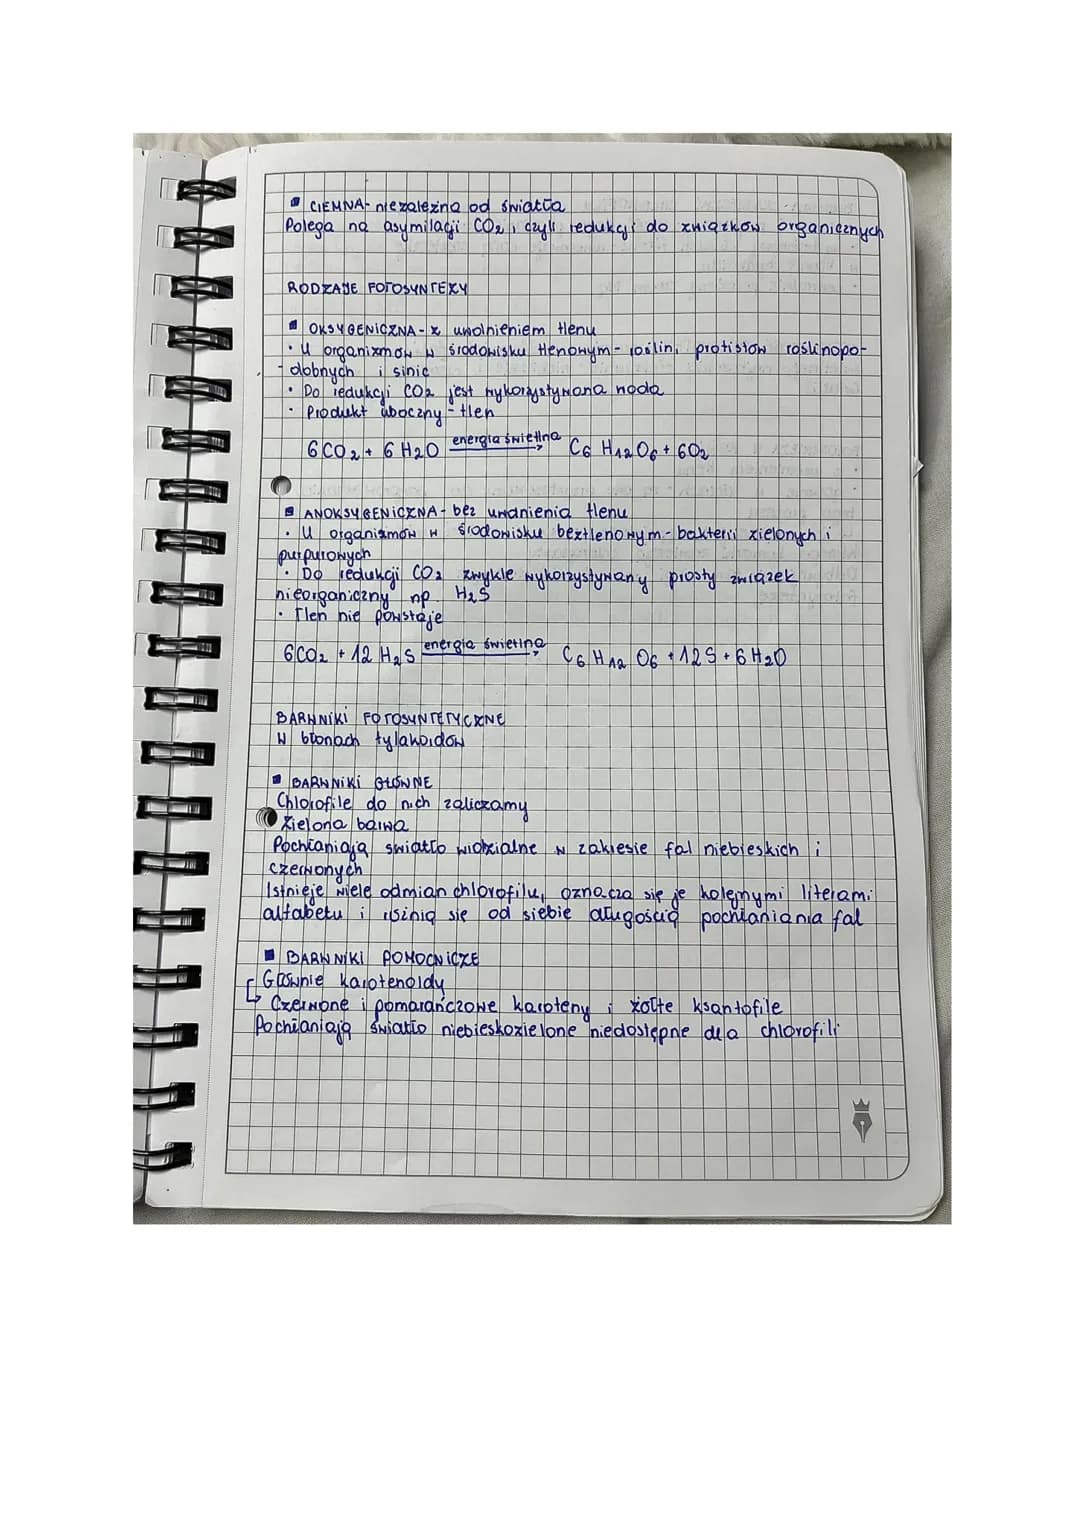 CIEMNA - niezależna od światła
Polega na asymilacji CO2, czyli redukcji do związków organicznych
RODZAJE FOTOSYNTEZY
OKSYGENICZNA - z uwolnieniem tlenu
• U organizmów w środowisku tlenowym - roślin, protistów roślinopo-
- dobnych i sinic
• Do redukcji CO2 jest wykorzystywana woda
• Produkt uboczny - tlen
6CO2 + 6H2O energia świetlna → C6H12O6 + 6O2
ANOKSYGENICZNA - bez uwalnienia tlenu
• U organizmów w środowisku beztlenowym - bakterii zielonych i
purpurowych
• Do redukcji CO2 zwykle wykorzystywany prosty związek
nieorganiczny np. H2S
• Tlen nie powstaje
6CO2 + 12H2S energia świetlna → C6H12O6 + 12S + 6H2O
BARWNIKI FOTOSYNTETYCZNE
W błonach tylakoidów
BARWNIKI GŁÓWNE
Chlorofile do nich zaliczamy
Zielona barwa
Pochłaniają światło widzialne w zakresie fal niebieskich i
czerwonych
Istnieje wiele odmian chlorofilu, oznacza się je kolejnymi literami
alfabetu i różnią się od siebie długością pochłaniania fal
BARWNIKI POMOCNICZE
Głównie karotenoidy
↳ Czerwone i pomarańczowe karoteny i żółte ksantofile
Pochłaniają światło niebieskozielone niedostępne dla chlorofili